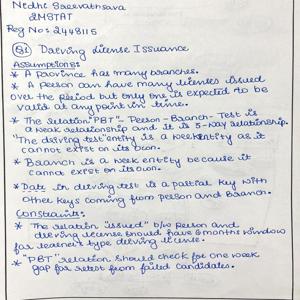 Nedhi Saeevathsava
2MSTAT
Reg No: 2448115
Q1 Driving License Issuance
Assumptions:
* A province has many branches.
* A person can have many licenses issued
over the period but only one is expected to be
valid at any point in time.
* The relation "PBT" - Person - Branch - Test is
a weak relationship and it is 3-way relationship.
"The driving test" entity is a weak entity as it
cannot exist on its own.
* Branch is a weak entity because it
cannot exist on its own.
* Date in driving test is a partial key with
other keys coming from person and Branch.
Constraints:
* The relation "issued" b/w Person and
driving license should have 6 months window
for learner's type driving license.
* "PBT" relation should check for one week
gap for retest from failed candidates.